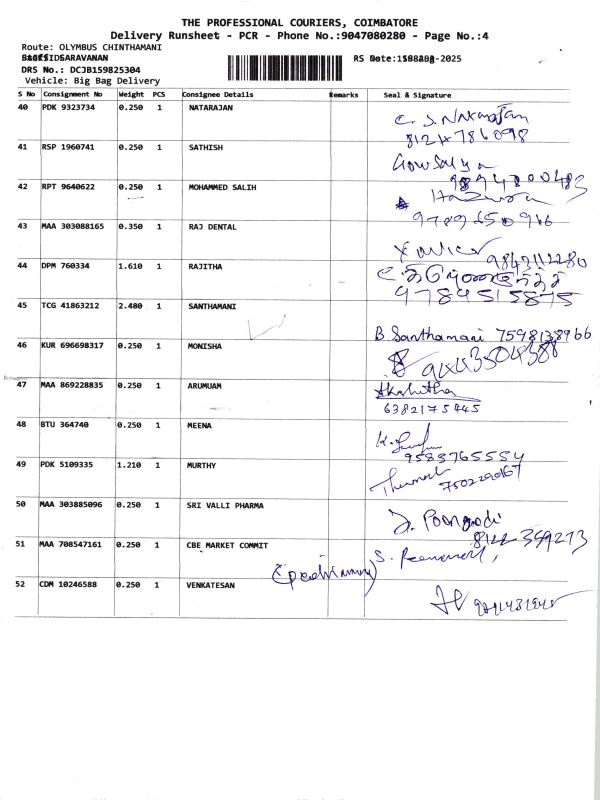 THE PROFESSIONAL COURIERS, COIMBATORE
Delivery Runsheet - PCR - Phone No.:9047080280 - Page No.:4
Route: OLYMBUS CHINTHAMANI
SARAVANAN
RS Date: -2025
DRS No.: DCJB159825304
Vehicle: Big Bag Delivery
S No Consignment No Weight PCS Consignee Details Remarks Seal & Signature
40 PDK 9323734 0.250 1 NATARAJAN
8124786098
41 RSP 1960741 0.250 1 SATHISH Gowsalya
9894700483
42 RPT 9640622 0.250 1 MOHAMMED SALIH
43 MAA 303088165 0.350 1 RAJ DENTAL Xavier 9842112280
44 DPM 760334 1.610 1 RAJITHA
9789515875
45 TCG 41863212 2.480 1 SANTHAMANI
B. Santhamani 7598138966
46 KUR 696698317 0.250 1 MONISHA
9443504388
47 MAA 869228835 0.250 1 ARUMUAM Akshitha
6382175445
48 BTU 364740 0.250 1 MEENA
9585765554
49 PDK 5109335 1.210 1 MURTHY
7502290167
50 MAA 303885096 0.250 1 SRI VALLI PHARMA
J. Poongodi
8122 359273
51 MAA 708547161 0.250 1 CBE MARKET COMMIT
52 CDM 10246588 0.250 1 VENKATESAN